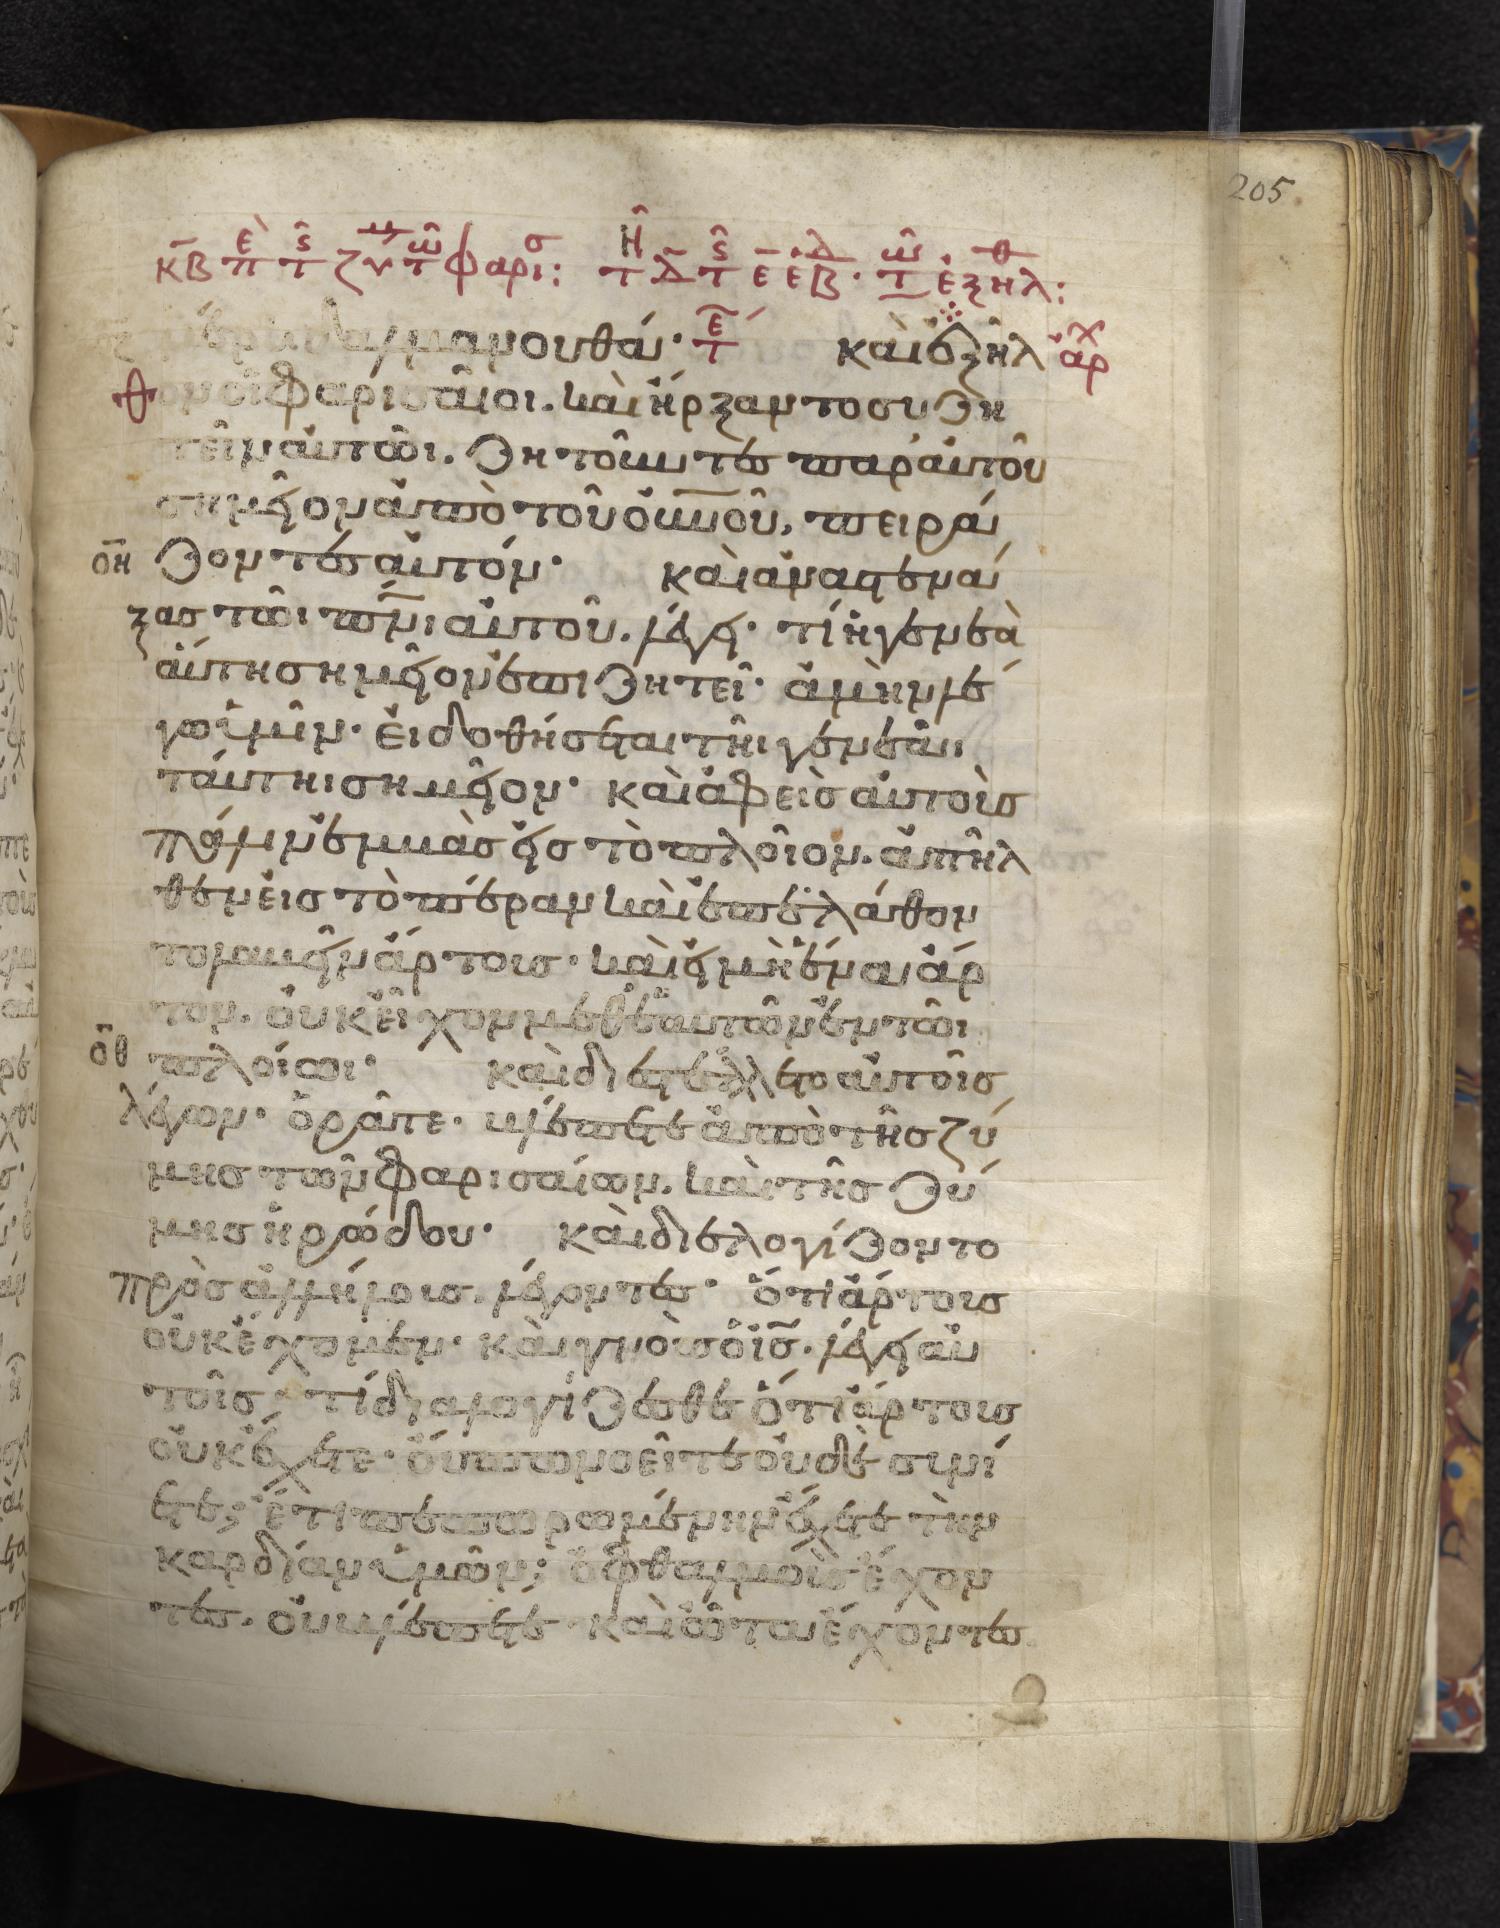 205
κβ περὶ τῆς ζύμης τῶν φαρισ: τ δ τῆς ε ἑβδ. τω ἐξῆλθ:
δαλμανουθά· τε καὶ ἐξῆλ ἀρχ
θον οἱ φαρισαῖοι. καὶ ἤρξαντο συζη
τεῖν αὐτῶι. ζητοῦντες παρ' αὐτοῦ
σημεῖον ἀπὸ τοῦ οὐνοῦ, πειρά
οη ζοντες αὐτόν· καὶ ἀναστενά
ξας τῶι πνι αὐτοῦ. λέγει· τί ἡ γενεὰ
αὕτη σημεῖον ἐπιζητεῖ· ἀμὴν λέ
γω ὑμῖν· εἰ δοθήσεται τῆι γενεᾶι
ταύτηι σημεῖον· καὶ ἀφεὶς αὐτοὺς
πάλιν ἐμβὰς εἰς τὸ πλοῖον. ἀπῆλ
θεν εἰς τὸ πέραν καὶ ἐπελάθον
το λαβεῖν ἄρτους· καὶ εἰ μὴ ἕνα ἄρ
τον. οὐκ εἶχον μεθ' ἑαυτῶν ἐν τῶι
οθ πλοίωι· καὶ διεστέλλετο αὐτοῖς
λέγων· ὁρᾶτε· βλέπετε ἀπὸ τῆς ζύ
μης τῶν φαρισαίων. καὶ τῆς ζύ
μης ἡρώδου· καὶ διελογίζοντο
πρὸς ἀλλήλους. λέγοντες· ὅτι ἄρτους
οὐκ ἔχομεν· καὶ γνοὺς ὁ ις. λέγει αὐ
τοῖς· τί διαλογίζεσθε ὅτι ἄρτους
οὐκ ἔχετε· οὔπω νοεῖτε οὐδὲ συνί
ετε; ἔτι πεπωρωμένην ἔχετε τὴν
καρδίαν ὑμῶν; ὀφθαλμοὺς ἔχον
τες. οὐ βλέπετε· καὶ ὦτα ἔχοντες